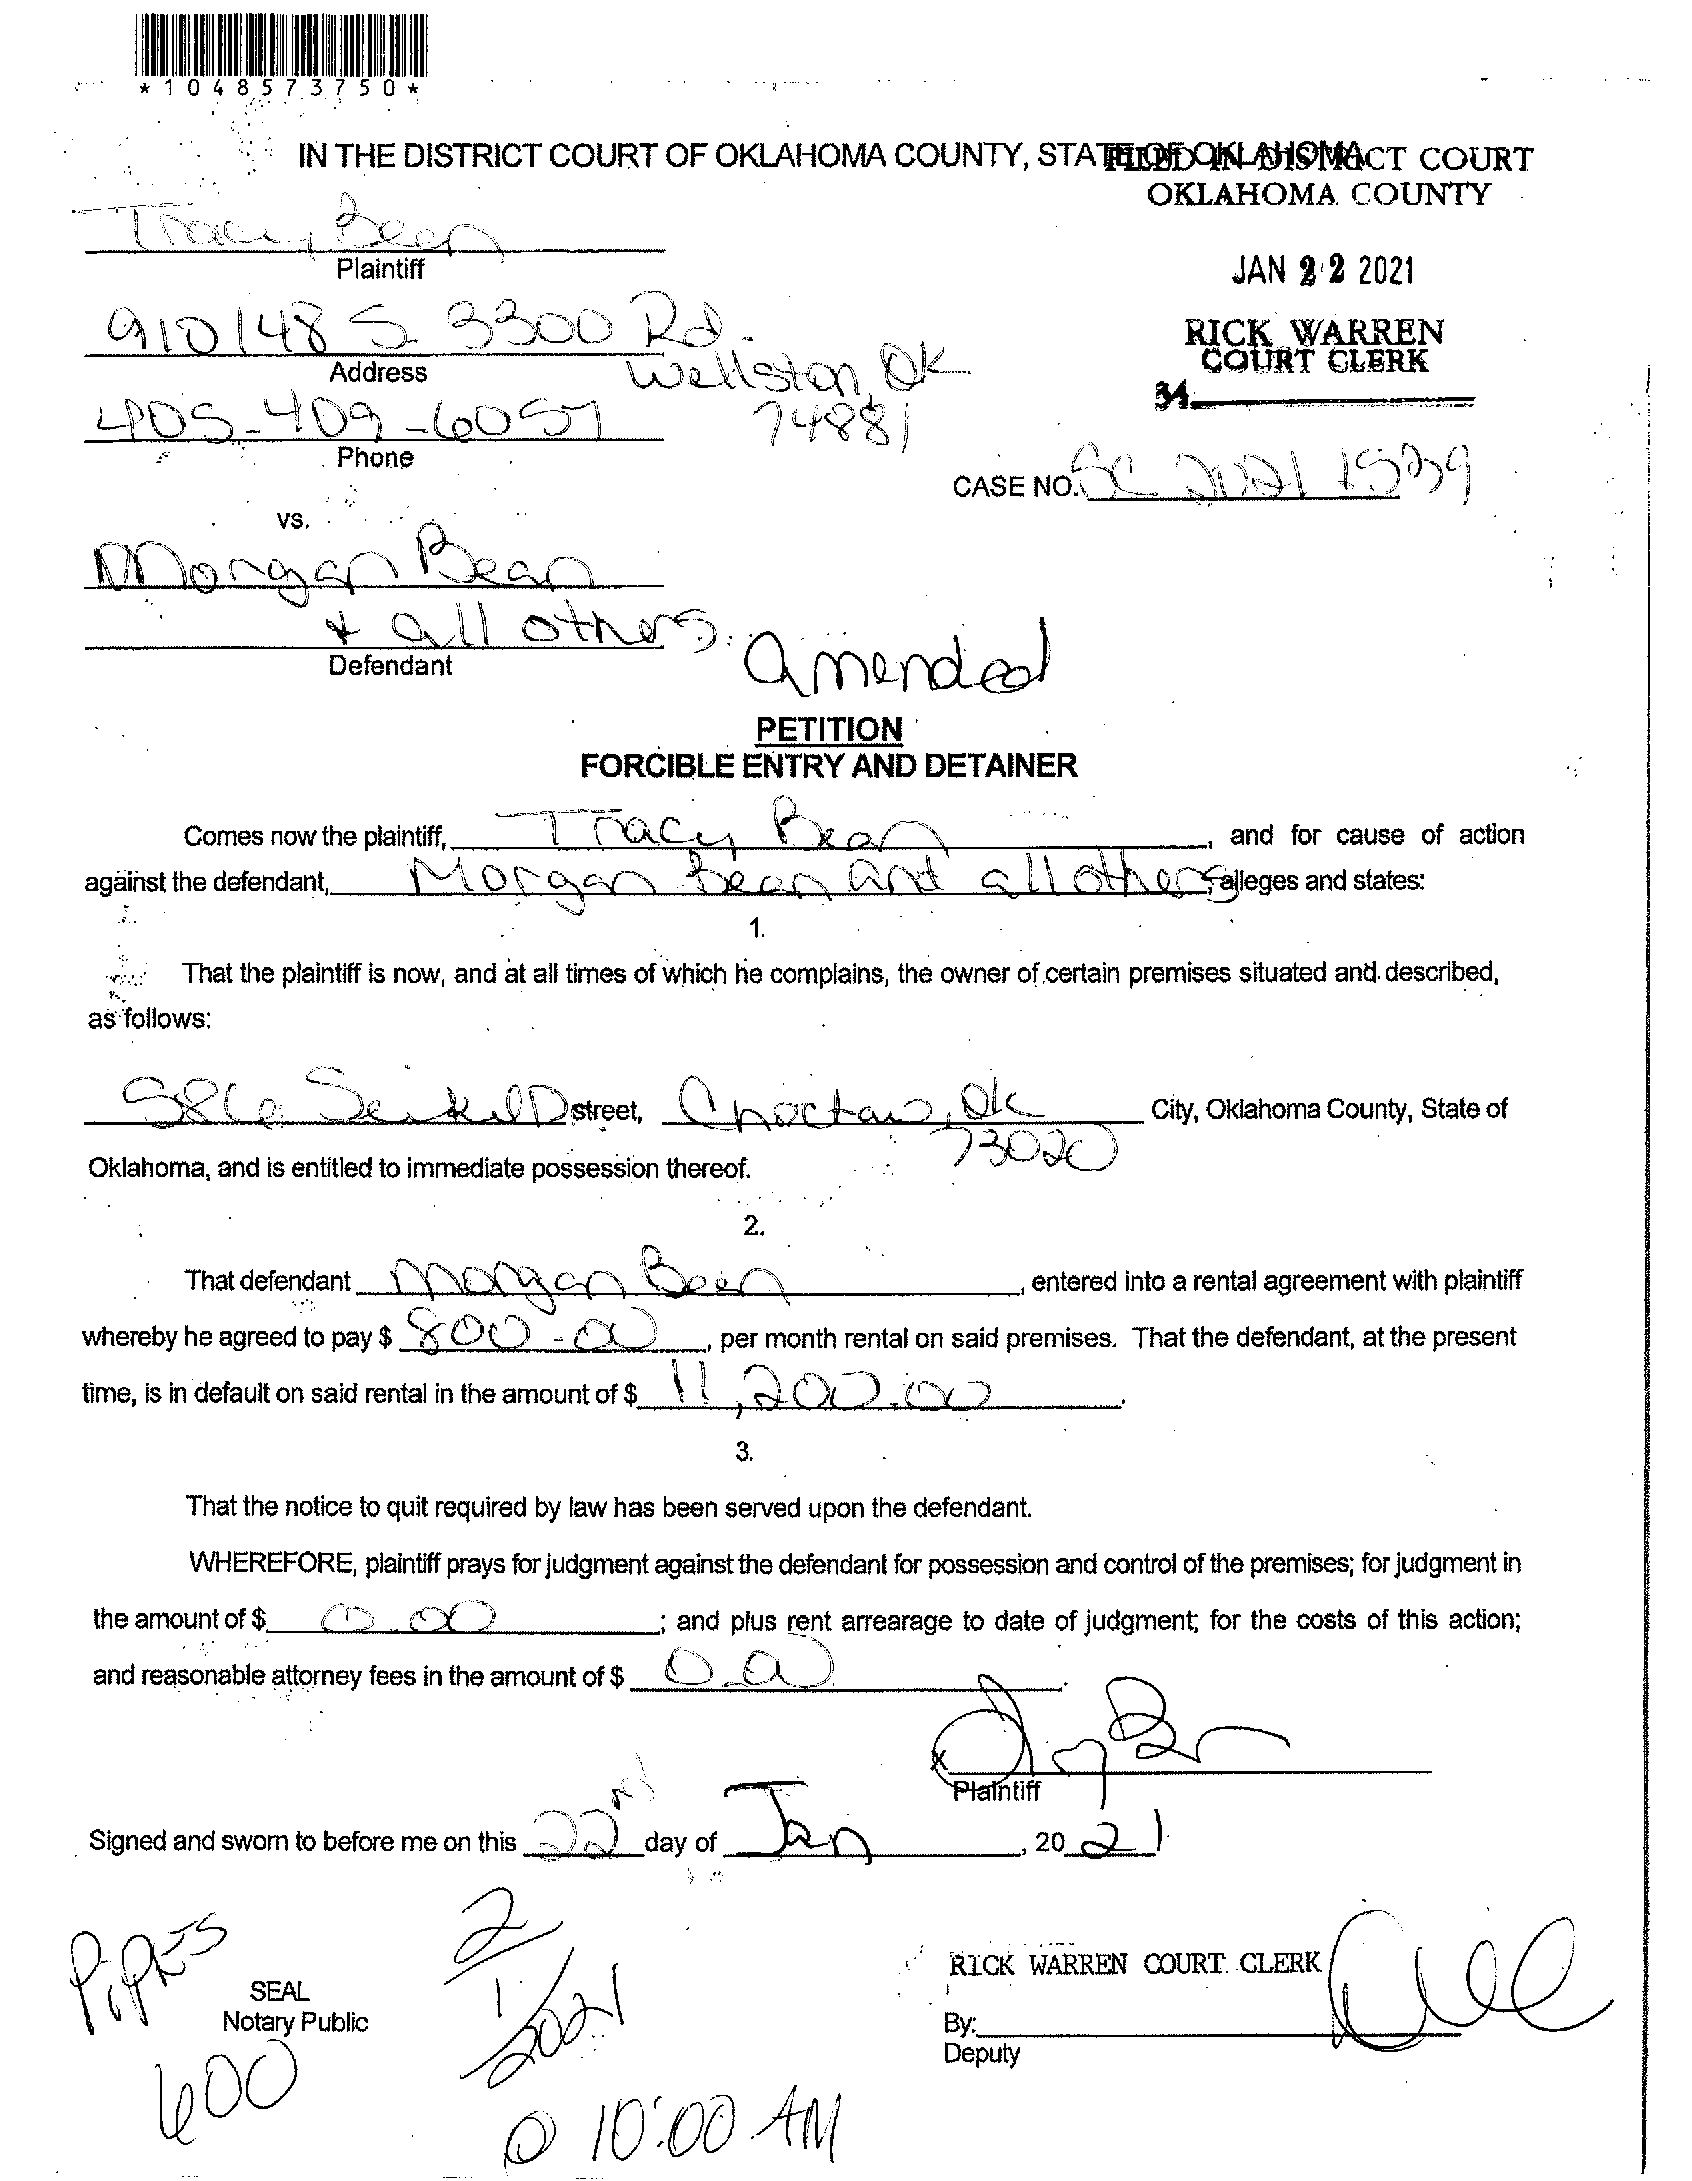 *1048573750*
IN THE DISTRICT COURT OF OKLAHOMA COUNTY, STATE OF OKLAHOMA
FILED IN DISTRICT COURT
OKLAHOMA COUNTY
JAN 22 2021
RICK WARREN
COURT CLERK
34
Tracy Bean
Plaintiff
910148 S 3300 Rd.
Address
Wellston, OK
74881
405-409-6057
Phone
CASE NO. SC 2021 1539
vs.
Morgan Bean
& all others.
Defendant
Amended
PETITION
FORCIBLE ENTRY AND DETAINER
Comes now the plaintiff, Tracy Bean, and for cause of action
against the defendant, Morgan Bean and all others, alleges and states:
1.
That the plaintiff is now, and at all times of which he complains, the owner of certain premises situated and described,
as follows:
street, Choctaw, Ok City, Oklahoma County, State of
73020
Oklahoma, and is entitled to immediate possession thereof.
2.
That defendant Morgan Bean, entered into a rental agreement with plaintiff
whereby he agreed to pay $ 800-00, per month rental on said premises. That the defendant, at the present
time, is in default on said rental in the amount of $ 11,200.00.
3.
That the notice to quit required by law has been served upon the defendant.
WHEREFORE, plaintiff prays for judgment against the defendant for possession and control of the premises; for judgment in
the amount of $ 0.00; and plus rent arrearage to date of judgment; for the costs of this action;
and reasonable attorney fees in the amount of $ 0.00.
x
Plaintiff
Signed and sworn to before me on this 22nd day of Jan, 2021
PiPKES
SEAL
Notary Public
600
2/1/2021
@ 10:00 AM
RICK WARREN COURT CLERK
By:
Deputy